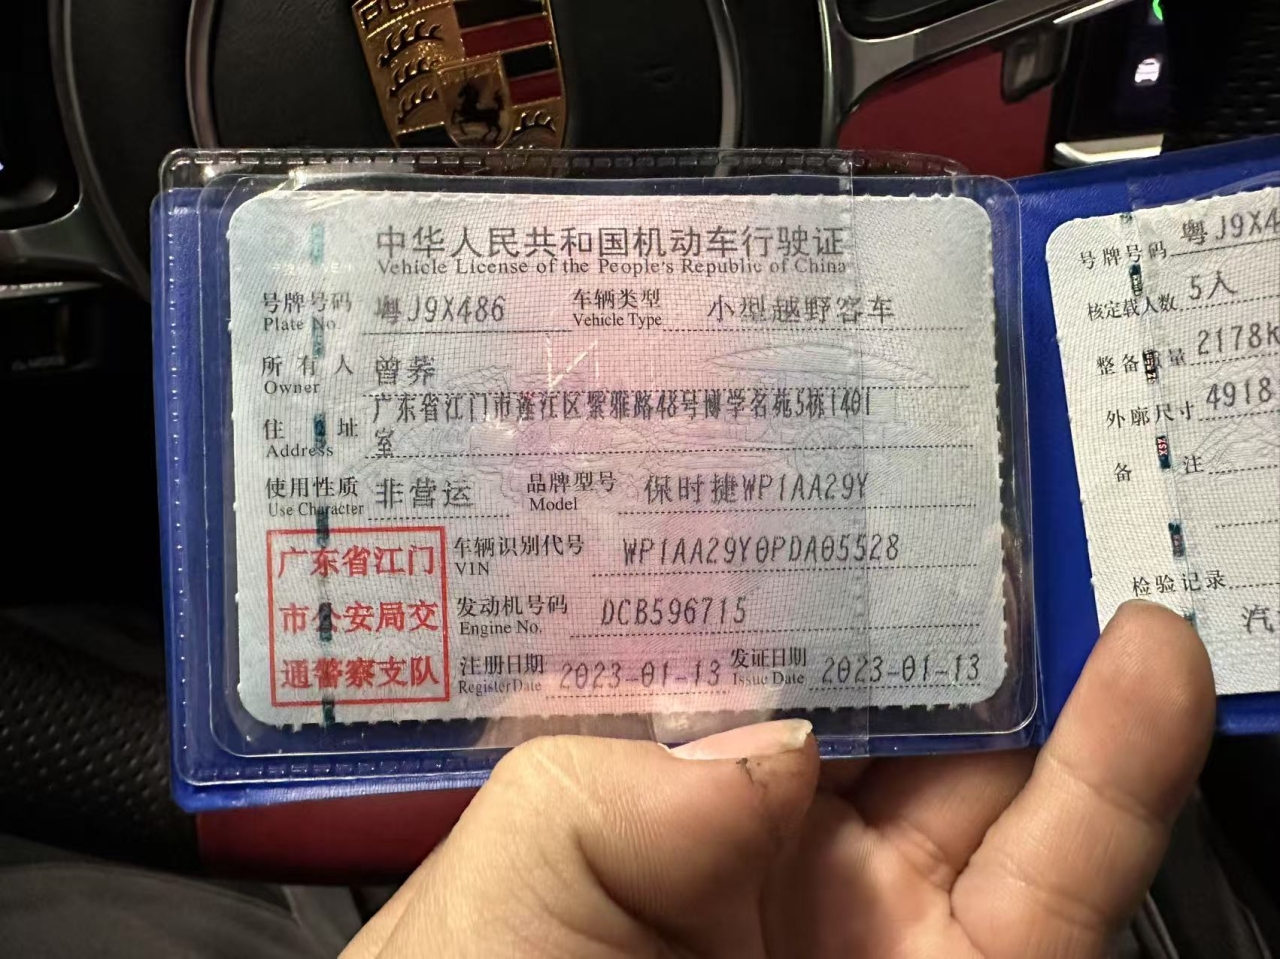 中华人民共和国机动车行驶证
Vehicle License of the People's Republic of China
号牌号码 粤J9X486 车辆类型 小型越野客车
Plate No. Vehicle Type
所有人 曾荞
Owner
住址 广东省江门市蓬江区紫雅路48号博学名苑5栋1401
室
Address
使用性质 非营运 品牌型号 保时捷WP1AA29Y
Use Character Model
车辆识别代号 WP1AA29Y0PDA05528
VIN
发动机号码 DCB596715
Engine No.
注册日期 2023-01-13 发证日期 2023-01-13
Register Date Issue Date
广东省江门
市公安局交
通警察支队
号牌号码 粤J9X4
核定载人数 5人
整备质量 2178k
外廓尺寸 4918
备注
检验记录
汽